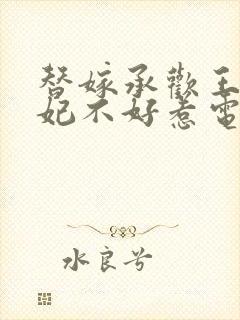 替嫁承歡王
妃不好惹電
水良兮